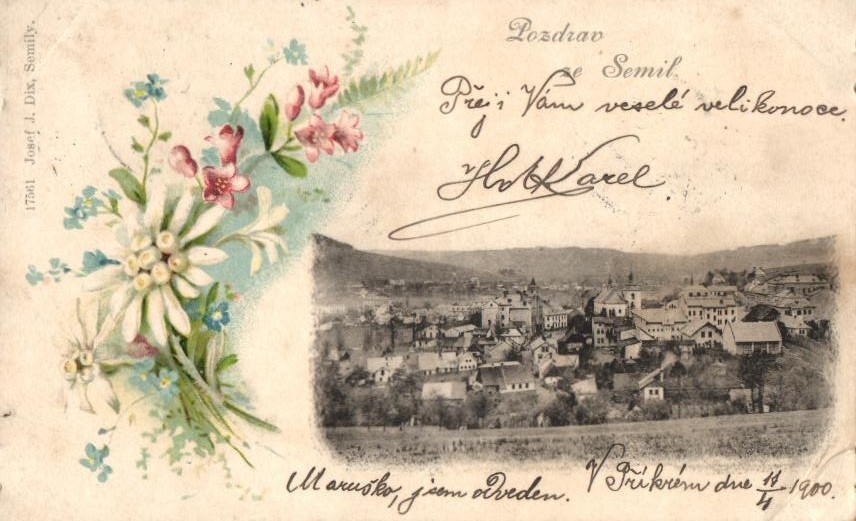 Pozdrav
ze Semil
Přeji Vám veselé velikonoce.
Karel
17561 Josef J. Dix, Semily.
Maruško, jsem odveden.
V Příkrém dne 11/4 1900.